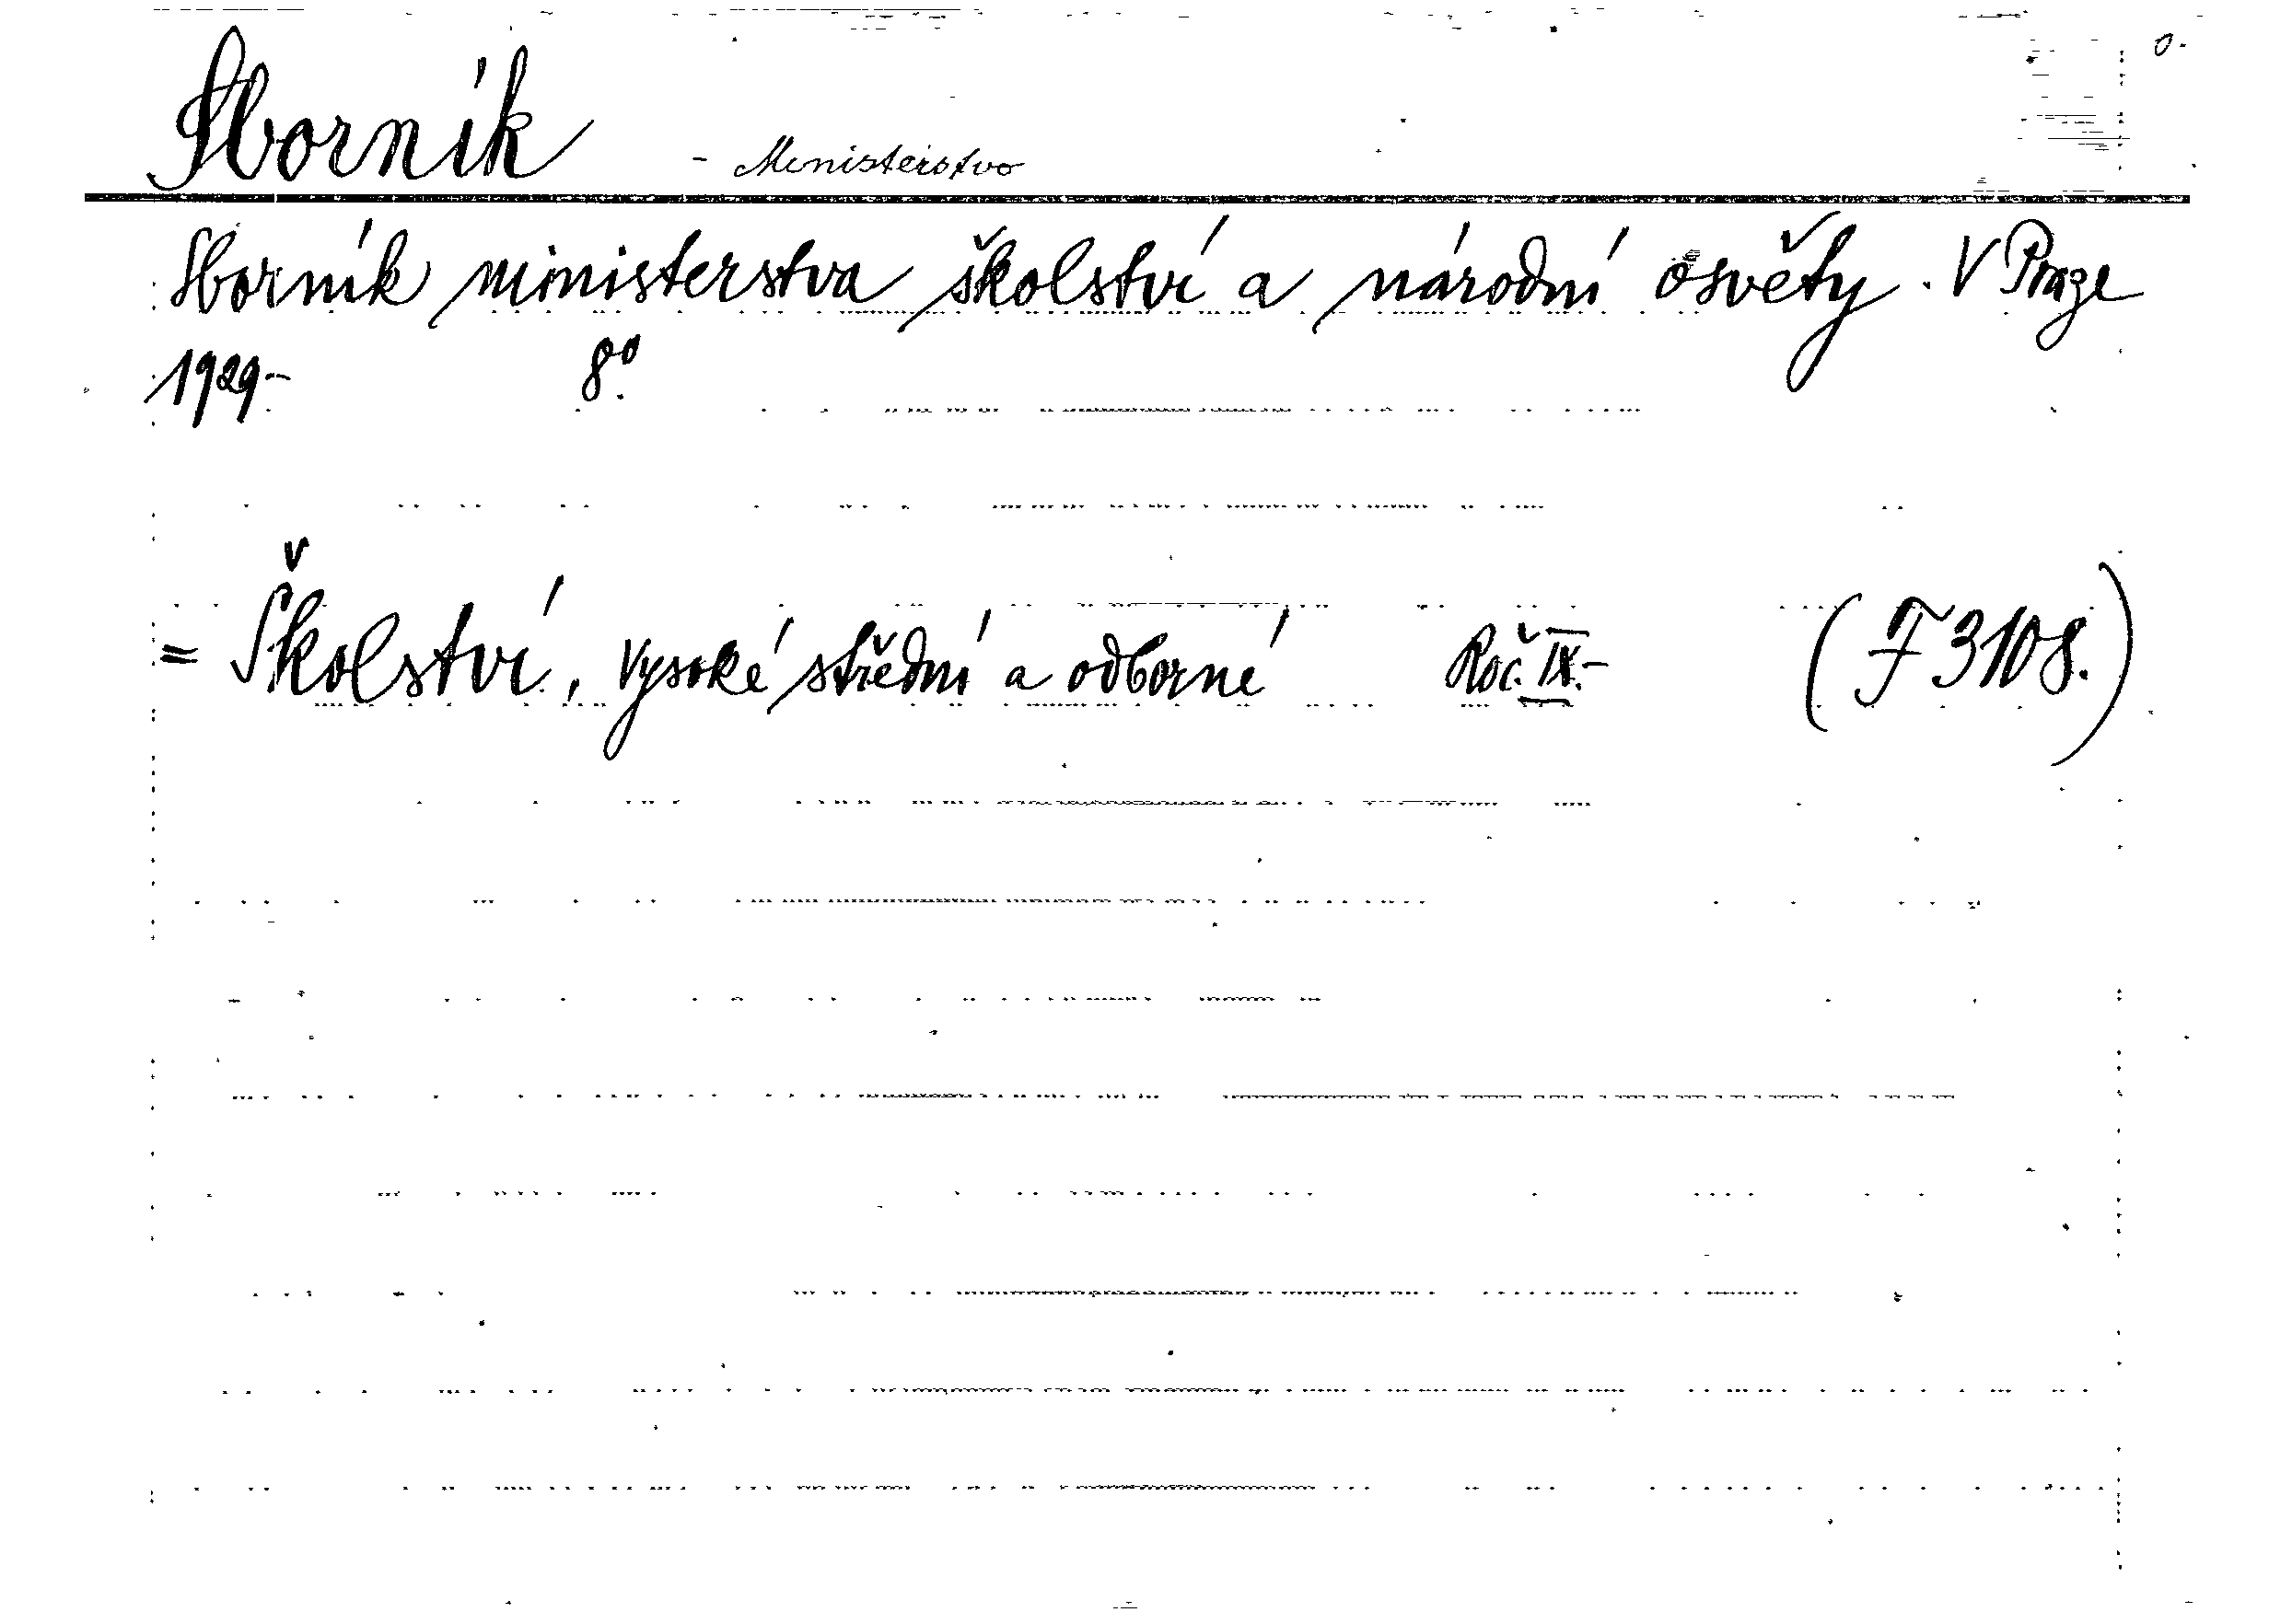 Sborník - Ministerstvo
Sborník ministerstva školství a národní osvěty. V Praze
1929- 8º.
= Školství, vysoké střední a odborné Roč. IX.- (F 3108.)